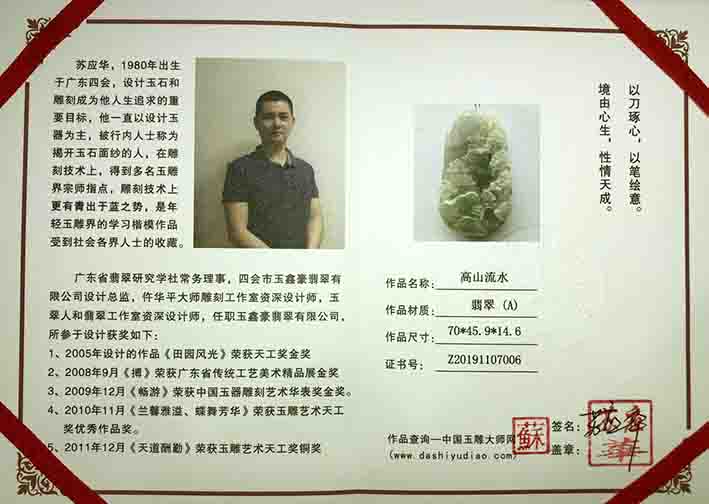 苏应华，1980年出生
于广东四会，设计玉石和
雕刻成为他人生追求的重
要目标，他一直以设计玉
器为主，被行内人士称为
揭开玉石面纱的人，在雕
刻技术上，得到多名玉雕
界宗师指点，雕刻技术上
更有青出于蓝之势，是年
轻玉雕界的学习楷模作品
受到社会各界人士的收藏。
广东省翡翠研究学社常务理事，四会市玉鑫豪翡翠有
限公司设计总监，仵华平大师雕刻工作室资深设计师，玉
翠人和翡翠工作室资深设计师，任职玉鑫豪翡翠有限公司，
所参于设计获奖如下：
1、2005年设计的作品《田园风光》荣获天工奖金奖
2、2008年9月《搏》荣获广东省传统工艺美术精品展金奖
3、2009年12月《畅游》荣获中国玉器雕刻艺术华表奖金奖。
4、2010年11月《兰馨雅溢、蝶舞芳华》荣获玉雕艺术天工
奖优秀作品奖。
5、2011年12月《天道酬勤》荣获玉雕艺术天工奖铜奖
以刀琢心，以笔绘意。
境由心生，性情天成。
作品名称：高山流水
作品材质：翡翠（A）
作品尺寸：70*45.9*14.6
证书号：Z20191107006
作品查询—中国玉雕大师网
(www.dashiyudiao.com)
蘇
签名：
盖章：